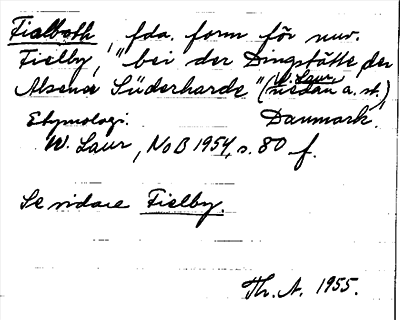 Fialboth, fda. form för nuv.
Fielby, "bei der Dingstätte der
Alsener Süderharde" (W. Laur
nedan a. st.),
Etymologi. Danmark.
W. Laur, NoB 1954, s. 80 f.
Se vidare Fielby.
Th. A. 1955.